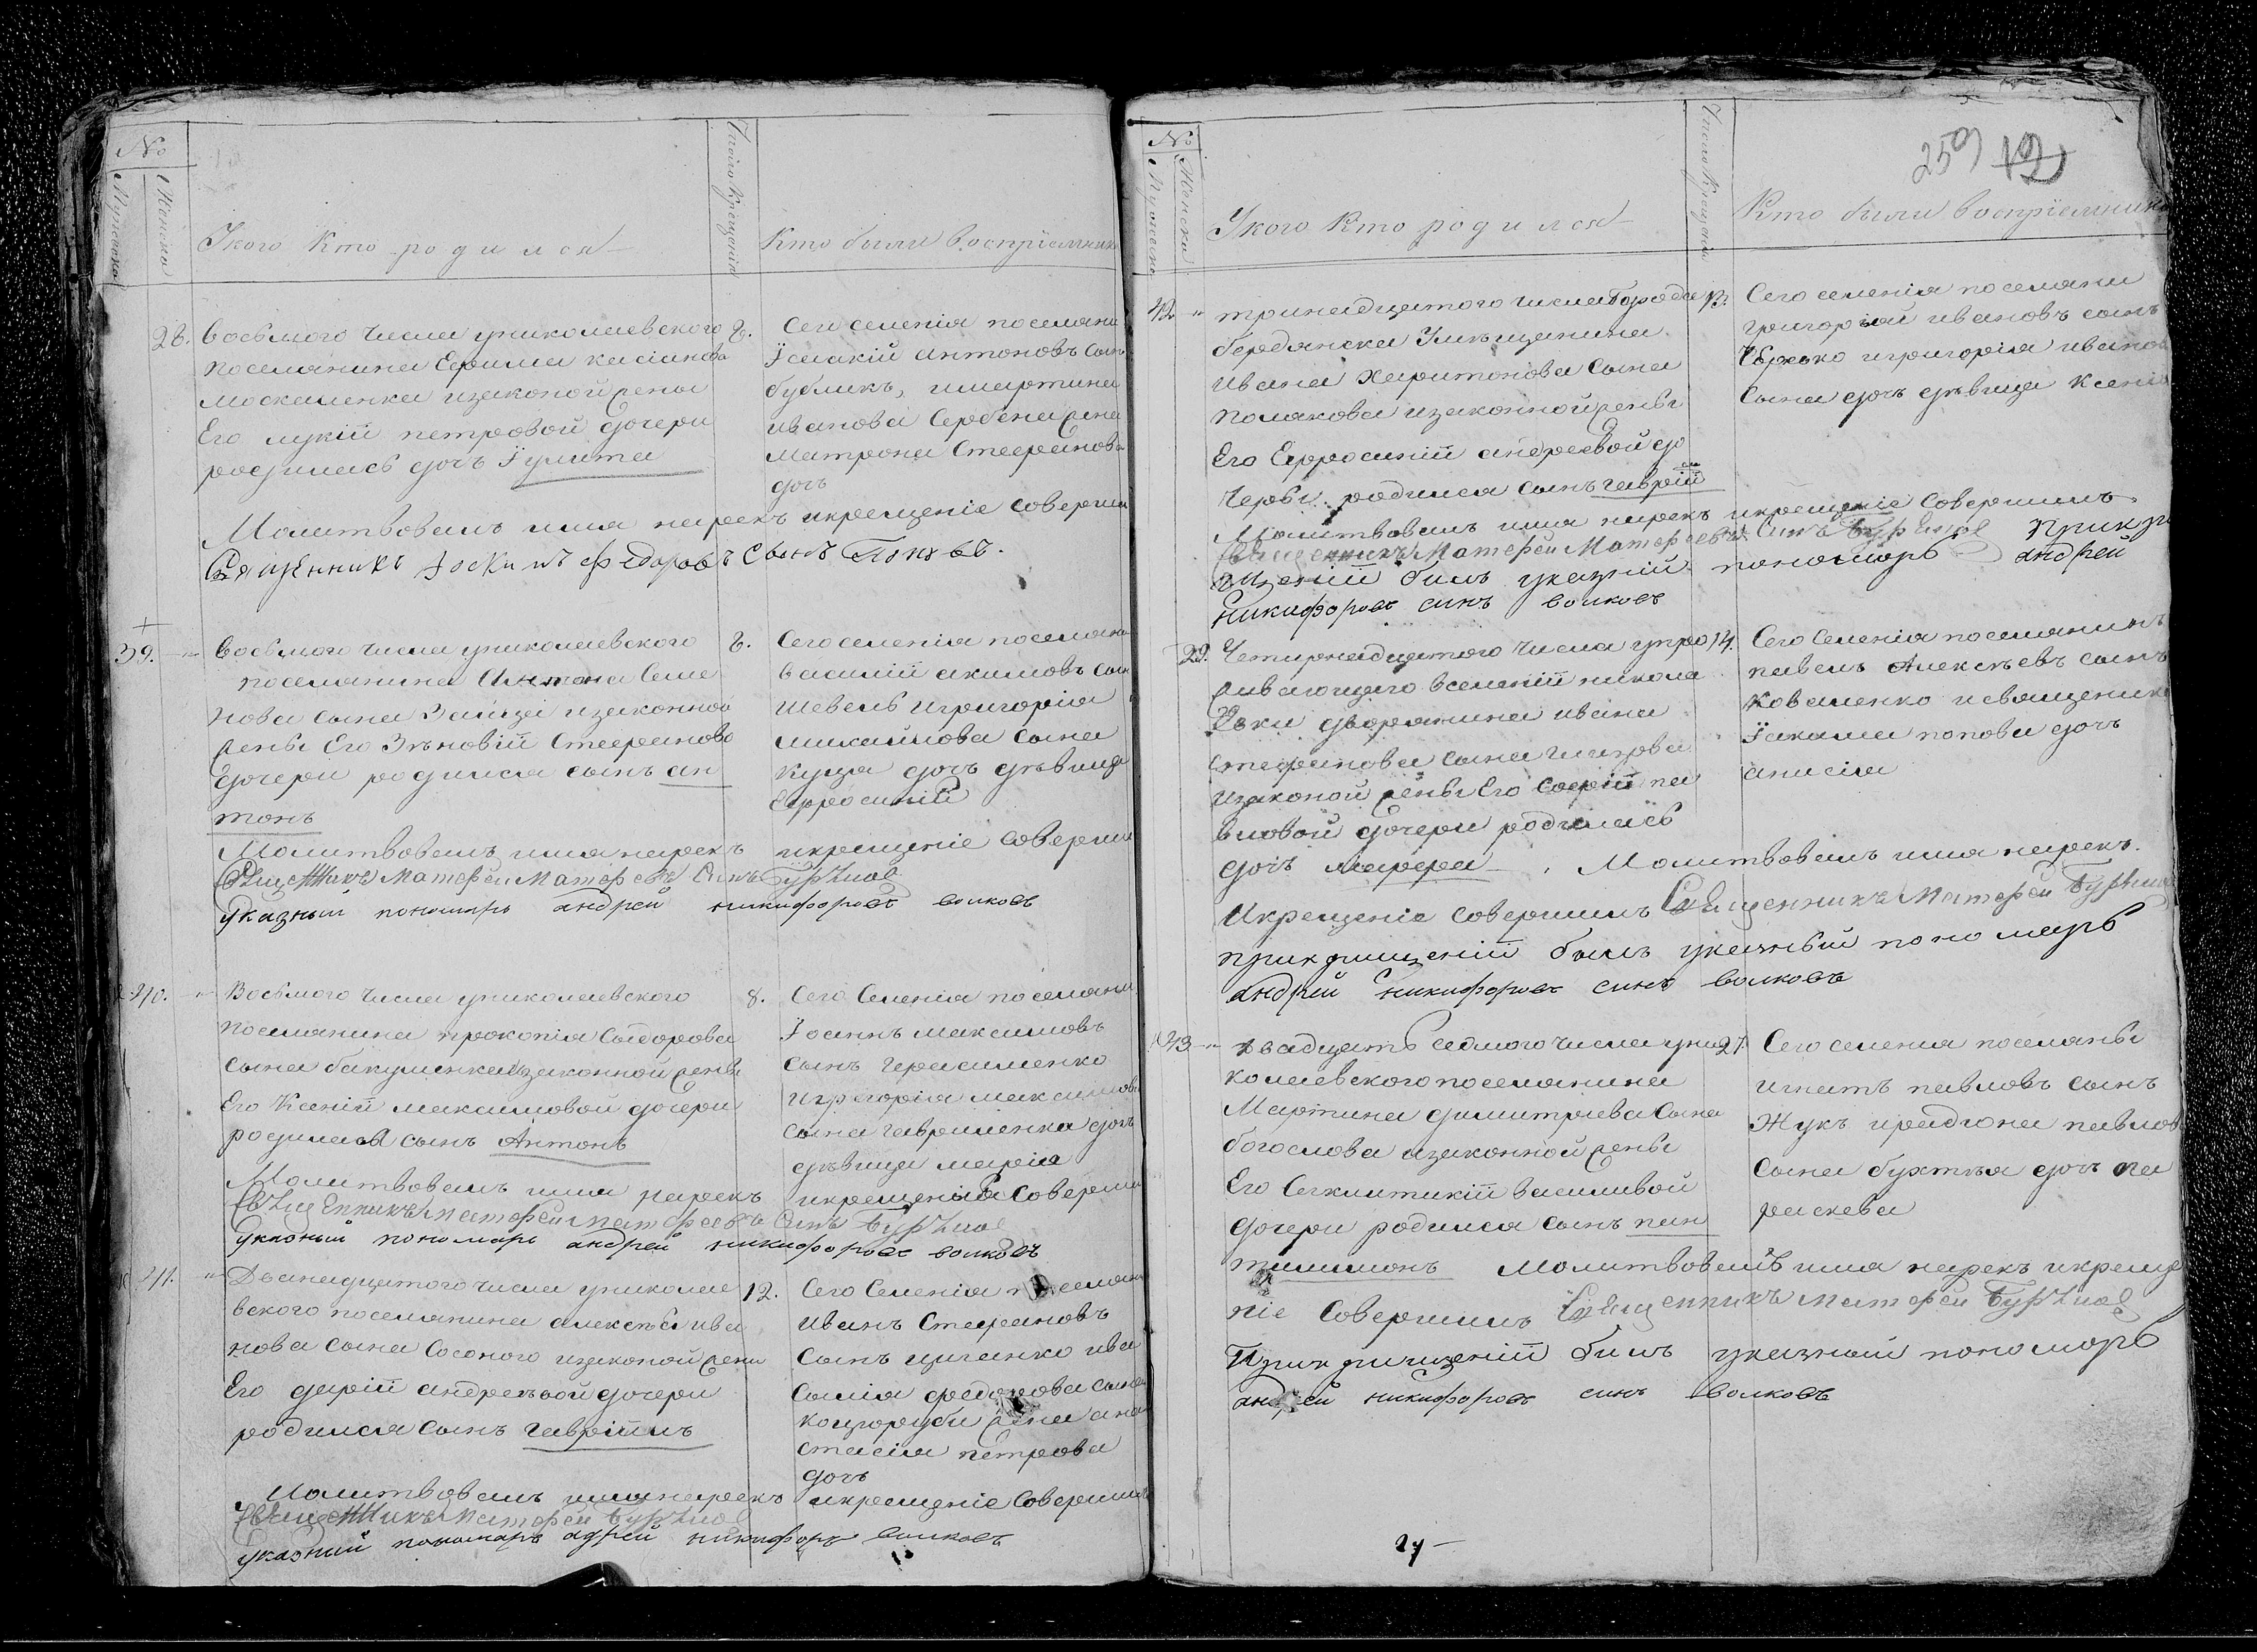 №
Мужеска
Женска
У кого кто родился
Число крещенія
Кто были восприемники
28.
Восьмого числа униколаевского
поселянина Ефима касіянова
москаленка изаконой жены
Его лукіи петровой дочери
родилась дочь Іулита
8.
Сего селенія поселяне
Ісаакій антоновъ сынъ
бубликъ, имартина
иванова Сербена жена
матрона Стефанова
дочь
Молитвовалъ имя нарекъ икрещеніе соверши
Священникъ Іоакимъ федоровъ Сынъ Поповъ.
39.
Восьмого числа униколаевского
поселянина Антона Семе
нова сына Зайца изаконной
жены Его Зѣновіи Стефановой
дочери родился сынъ ан
тонъ
8.
Сего селенія поселяне
василій акимовъ сын
шевель игригорія
михайлова сына
куца дочь дѣвица
Ефросинія
Молитвовалъ имя нарекъ икрещеніе соверши
Священникъ Матфей Матфеевъ Сынъ
Указный пономарь андрей никифоровъ волковъ
40.
Восьмого числа униколаевского
поселянина прокопія Сидорова
сына бакуменка изаконной жены
Его Ксеніи максимовой дочери
родился сынъ Антонъ
8.
Сего Селенія поселяне
Іоаннъ максимовъ
сынъ герасименко
игригорія максимова
сына гавриленка дочь
дѣвица марія
Молитвовалъ имя нарекъ икрещеніе Соверши
Священникъ матфей матфеевъ Сынъ
Указный пономарь андрей никифоровъ волковъ
41.
Дванадцатого числа униколае
вского поселянина алексѣя ива
нова сына Сосоного изаконой жены
Его даріи андреевой дочери
родился сынъ гавріилъ
12.
Сего Селенія поселяне
Иванъ Стефановъ
сынъ циганко ива
сылія федорова сына
жена ана
стасія петрова
дочь
Молитвовалъ имя нарекъ икрещеніе Совершилъ
Священникъ Матфей
указный пономарь адрей никифоръ волковъ
259 12
№
Мужеска
Женска
У кого кто родился
Число крещенія
Кто были восприемники
42.
тринадцатого числа Города
бердянска Умѣщанина
ивана харитонова сына
полякова изаконной жены
Его Ефросиніи андреевой до
черы родился сынъ гавріи
лъ
13.
Сего селенія поселяне
григорій ивановъ сынъ
игригорія иванов
Сына дочь дѣвица ксенія
Молитвовалъ имя нарекъ икрещеніе совершилъ
Священникъ Матфей Матфеевъ Сынъ
Прикре
щеніи билъ указній пономарь андрей
никифоровъ синъ волковъ
29.
Четырнадцатого числа упро
живающаго вселеніи никола
евки дворянина ивана
стефанова сына глазова
изаконой жены Его Софіи па
вловой дочери родилась
дочь марфа
14.
Сего Селенія поселянинъ
павелъ Алексѣевъ сынъ
коваленко исвященика
Іакима попова дочь
анисія
Молитвовалъ имя нарекъ
Икрещеніе совершилъ Священникъ Матфей
прикрищеніи былъ указный пономарь
андрей никифоровъ синъ волковъ
43
двадцать седмого числа уни
колаевского поселянина
Мартина димитріева Сына
богослова изаконной жены
Его Секлитикіи василивой
дочери родился сынъ пан
тилимонъ
27.
Сего селенія поселяны
игнатъ павловъ сынъ
Жукъ ирадіона павлов
сына бухтѣя дочь па
раскева
Молитвовалъ имя нарекъ икреще
ніе совершилъ Священникъ матфей
Прикрищеніи билъ указный пономарь
андрей никифоровъ синъ волковъ